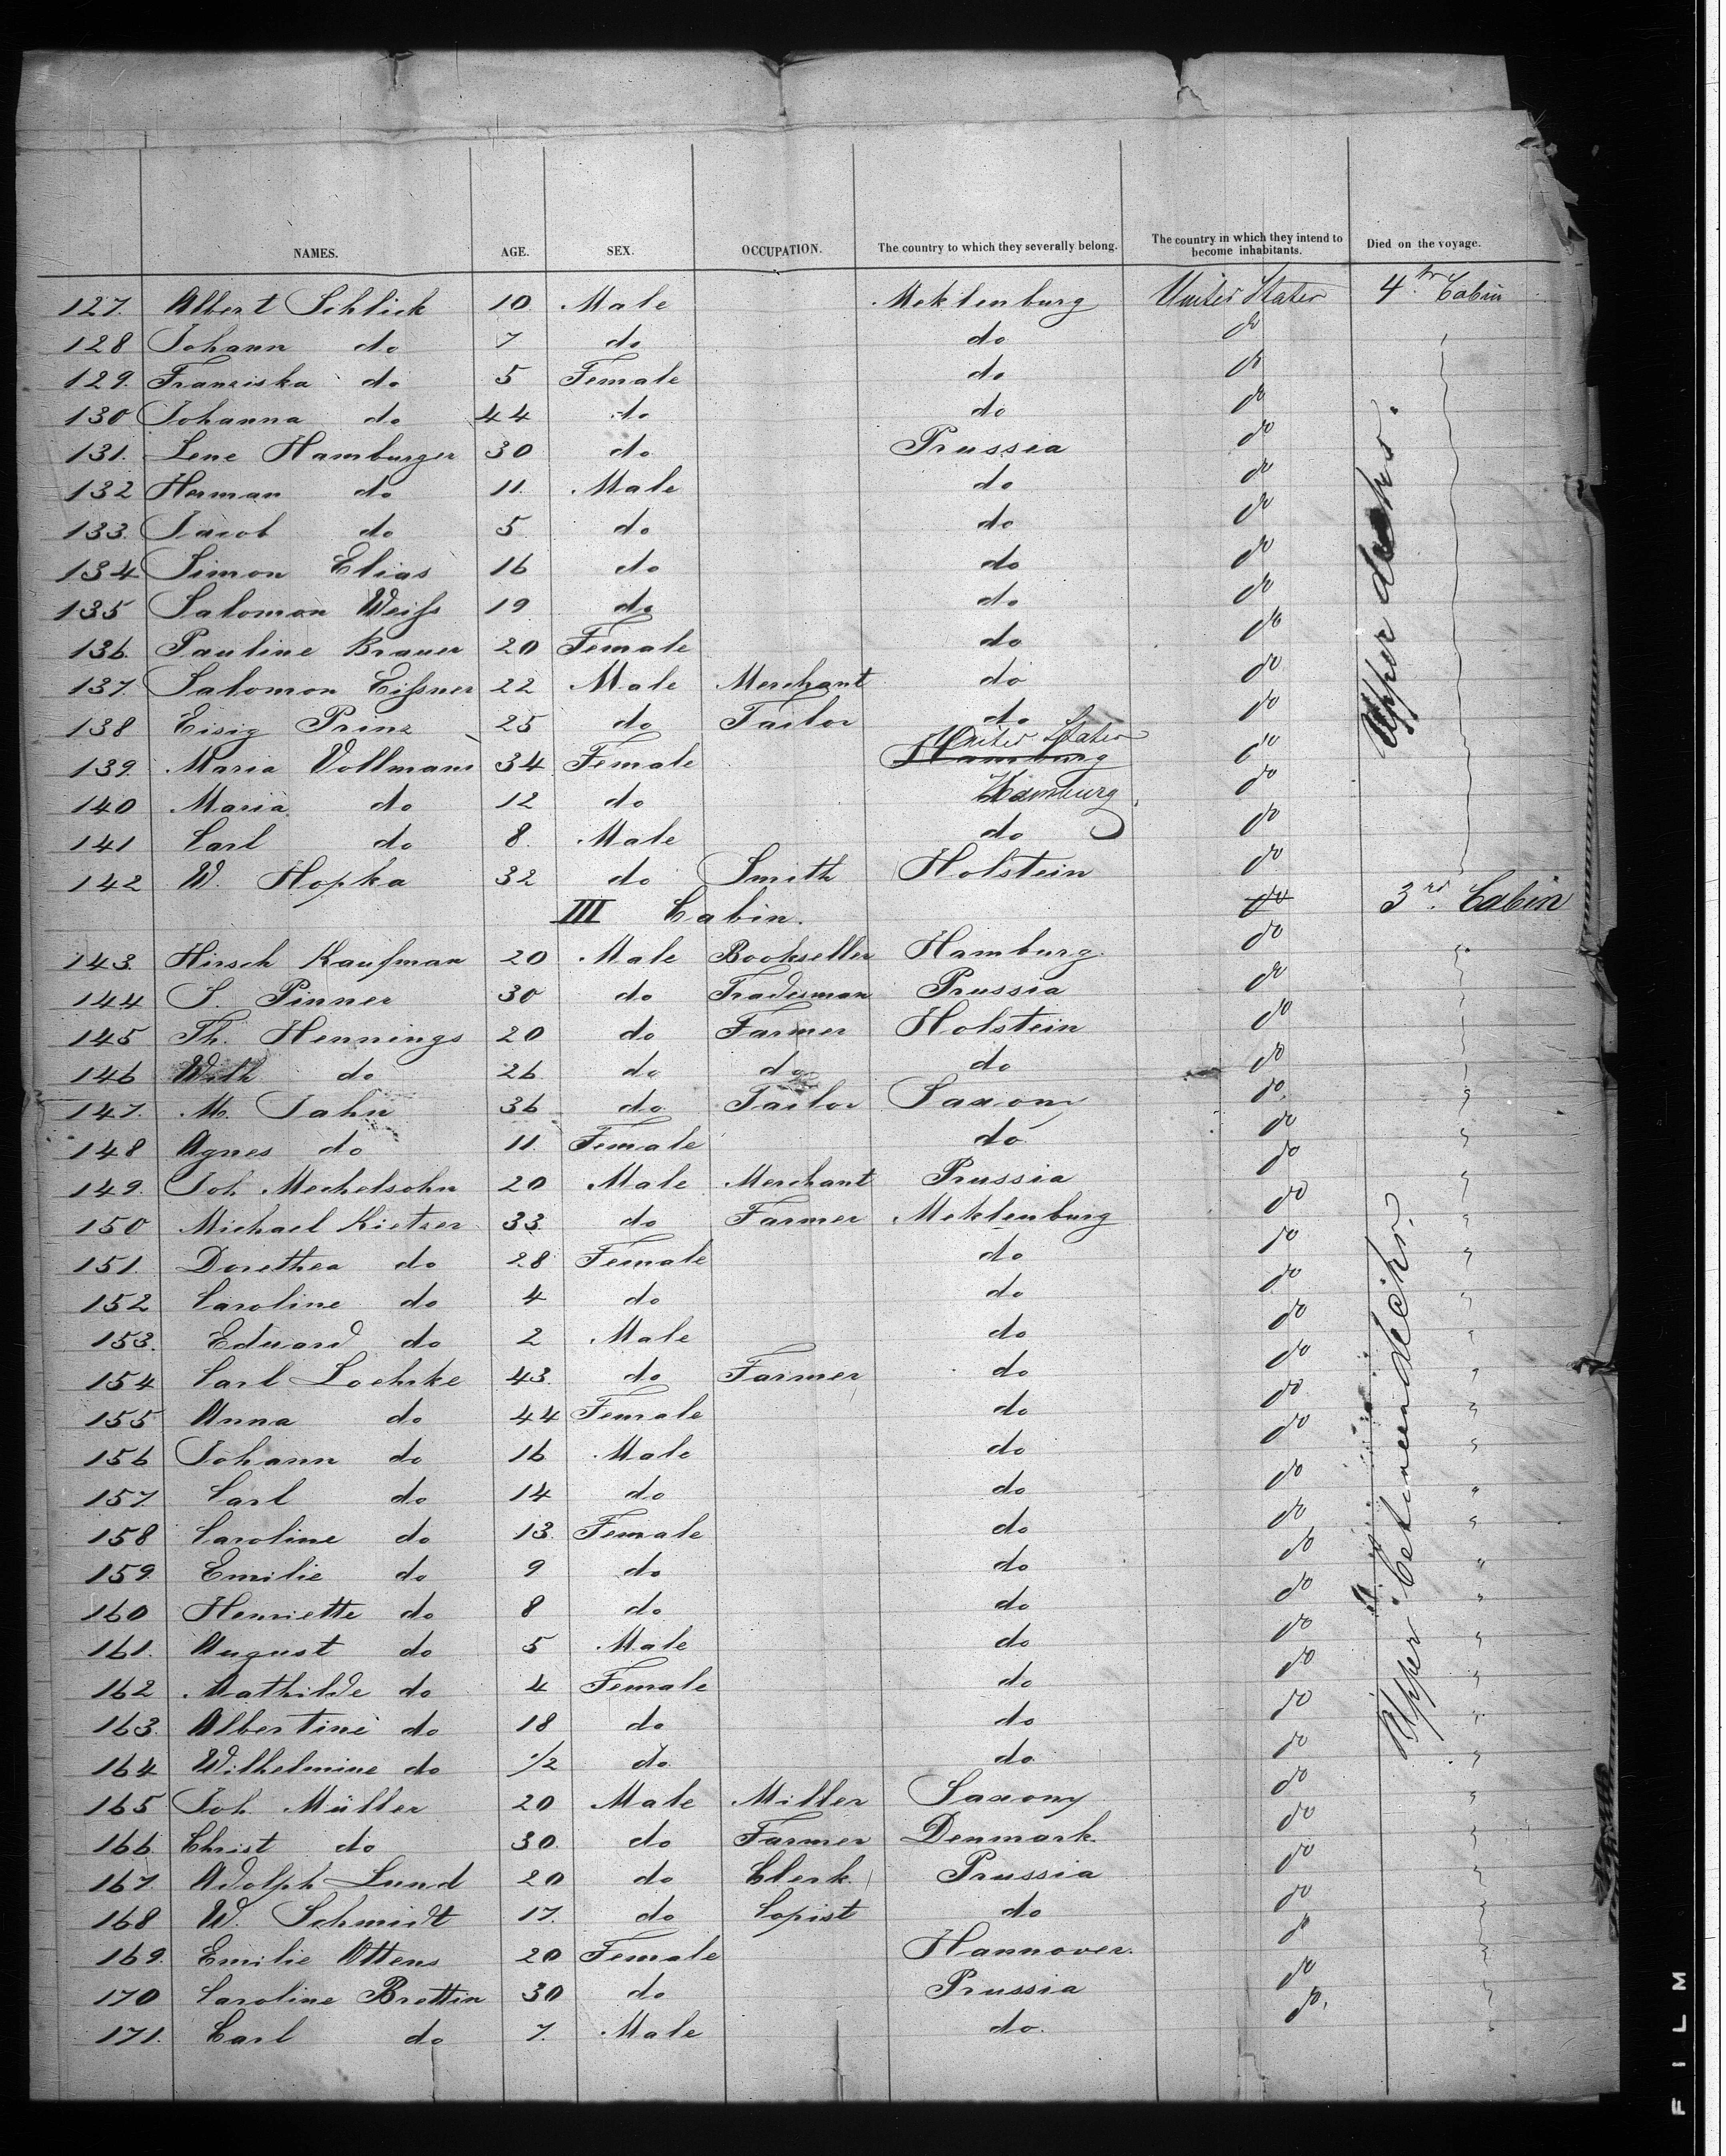 NAMES. AGE. SEX. OCCUPATION. The country to which they severally belong. The country in which they intend to become inhabitants. Died on the voyage.
127. Albert Schlick 10 Male Meklenburg United States 4th Cabin
128 Johann do 7 do do do
129. Franziska do 5 Female do do
130 Johanna do 44 do do do
131. Lene Hamburger 30 do Prussia do
132 Herman do 11. Male do do
133. Jacob do 5 do do do
134 Simon Elias 16 do do do
135 Salomon Weiss 19 do do do
136. Pauline Brauer 20 Female do do
137. Salomon Eissner 22 Male Merchant do do
138 Eisig Prinz 25 do Tailor do do
139. Maria Vollmann 34 Female Hamburg United States do
140 Maria do 12 do Hamburg do
141 Carl do 8. Male do do
142 W. Hopka 32 do Smith Holstein do
Upper deck.
III Cabin. do 3rd. Cabin
143. Hirsch Kaufman 20 Male Bookseller Hamburg. do
144 S. Pinner 30 do Tradesman Prussia do
145 Th. Hennings 20 do Farmer Holstein do
146 Wilh do 26 do do do do
147. M. Jahn 36 do Tailor Saxony do.
148 Agnes do 11. Female do do
149. Joh. Mechelsohn 20 Male Merchant Prussia do
150 Michael Kietzer 33 do Farmer Meklenburg do
151. Dorethea do 28 Female do do
152 Caroline do 4 do do do
153. Eduard do 2 Male do do
154 Carl Loehrke 43. do Farmer do do
155 Anna do 44 Female do do
156 Johann do 16 Male do do
157. Carl do 14 do do do
158 Caroline do 13. Female do do
159. Emilie do 9 do do do
160 Henriette do 8 do do do
161. August do 5 Male do do
162 Mathilde do 4 Female do do
163. Albertine do 18 do do do
164 Wilhelmine do 1/2 do do do
165 Joh. Müller 20 Male Miller Saxony do
166. Christ do 30. do Farmer Denmark do
167. Adolph Lund 20 do Clerk Prussia do
168 W. Schmidt 17. do Copist do do
169. Emilie Ottens 20 Female Hannover. do
170 Caroline Brettin 30 do Prussia do
171. Carl do 7. Male do. do.
Upper
FILM